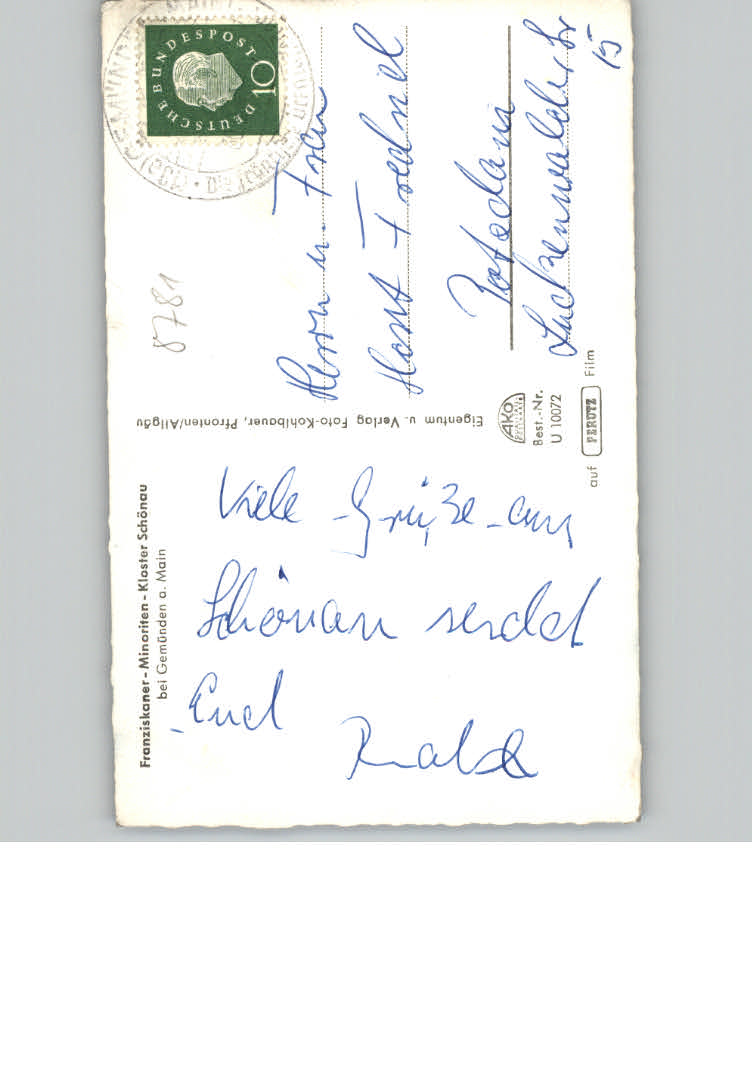 Franziskaner - Minoriten - Kloster Schönau
bei Gemünden a. Main
Viele Grüße aus
Schönau sendet
Euch
Eigentum u. Verlag Foto-Kohlbauer, Pfronten/Allgäu
AKO
Best.-Nr.
U 10072
auf PERUTZ Film
8781
DEUTSCHE BUNDESPOST
10
Herrn u. Frau
Horst
Potsdam
Luckenwalder Str
15